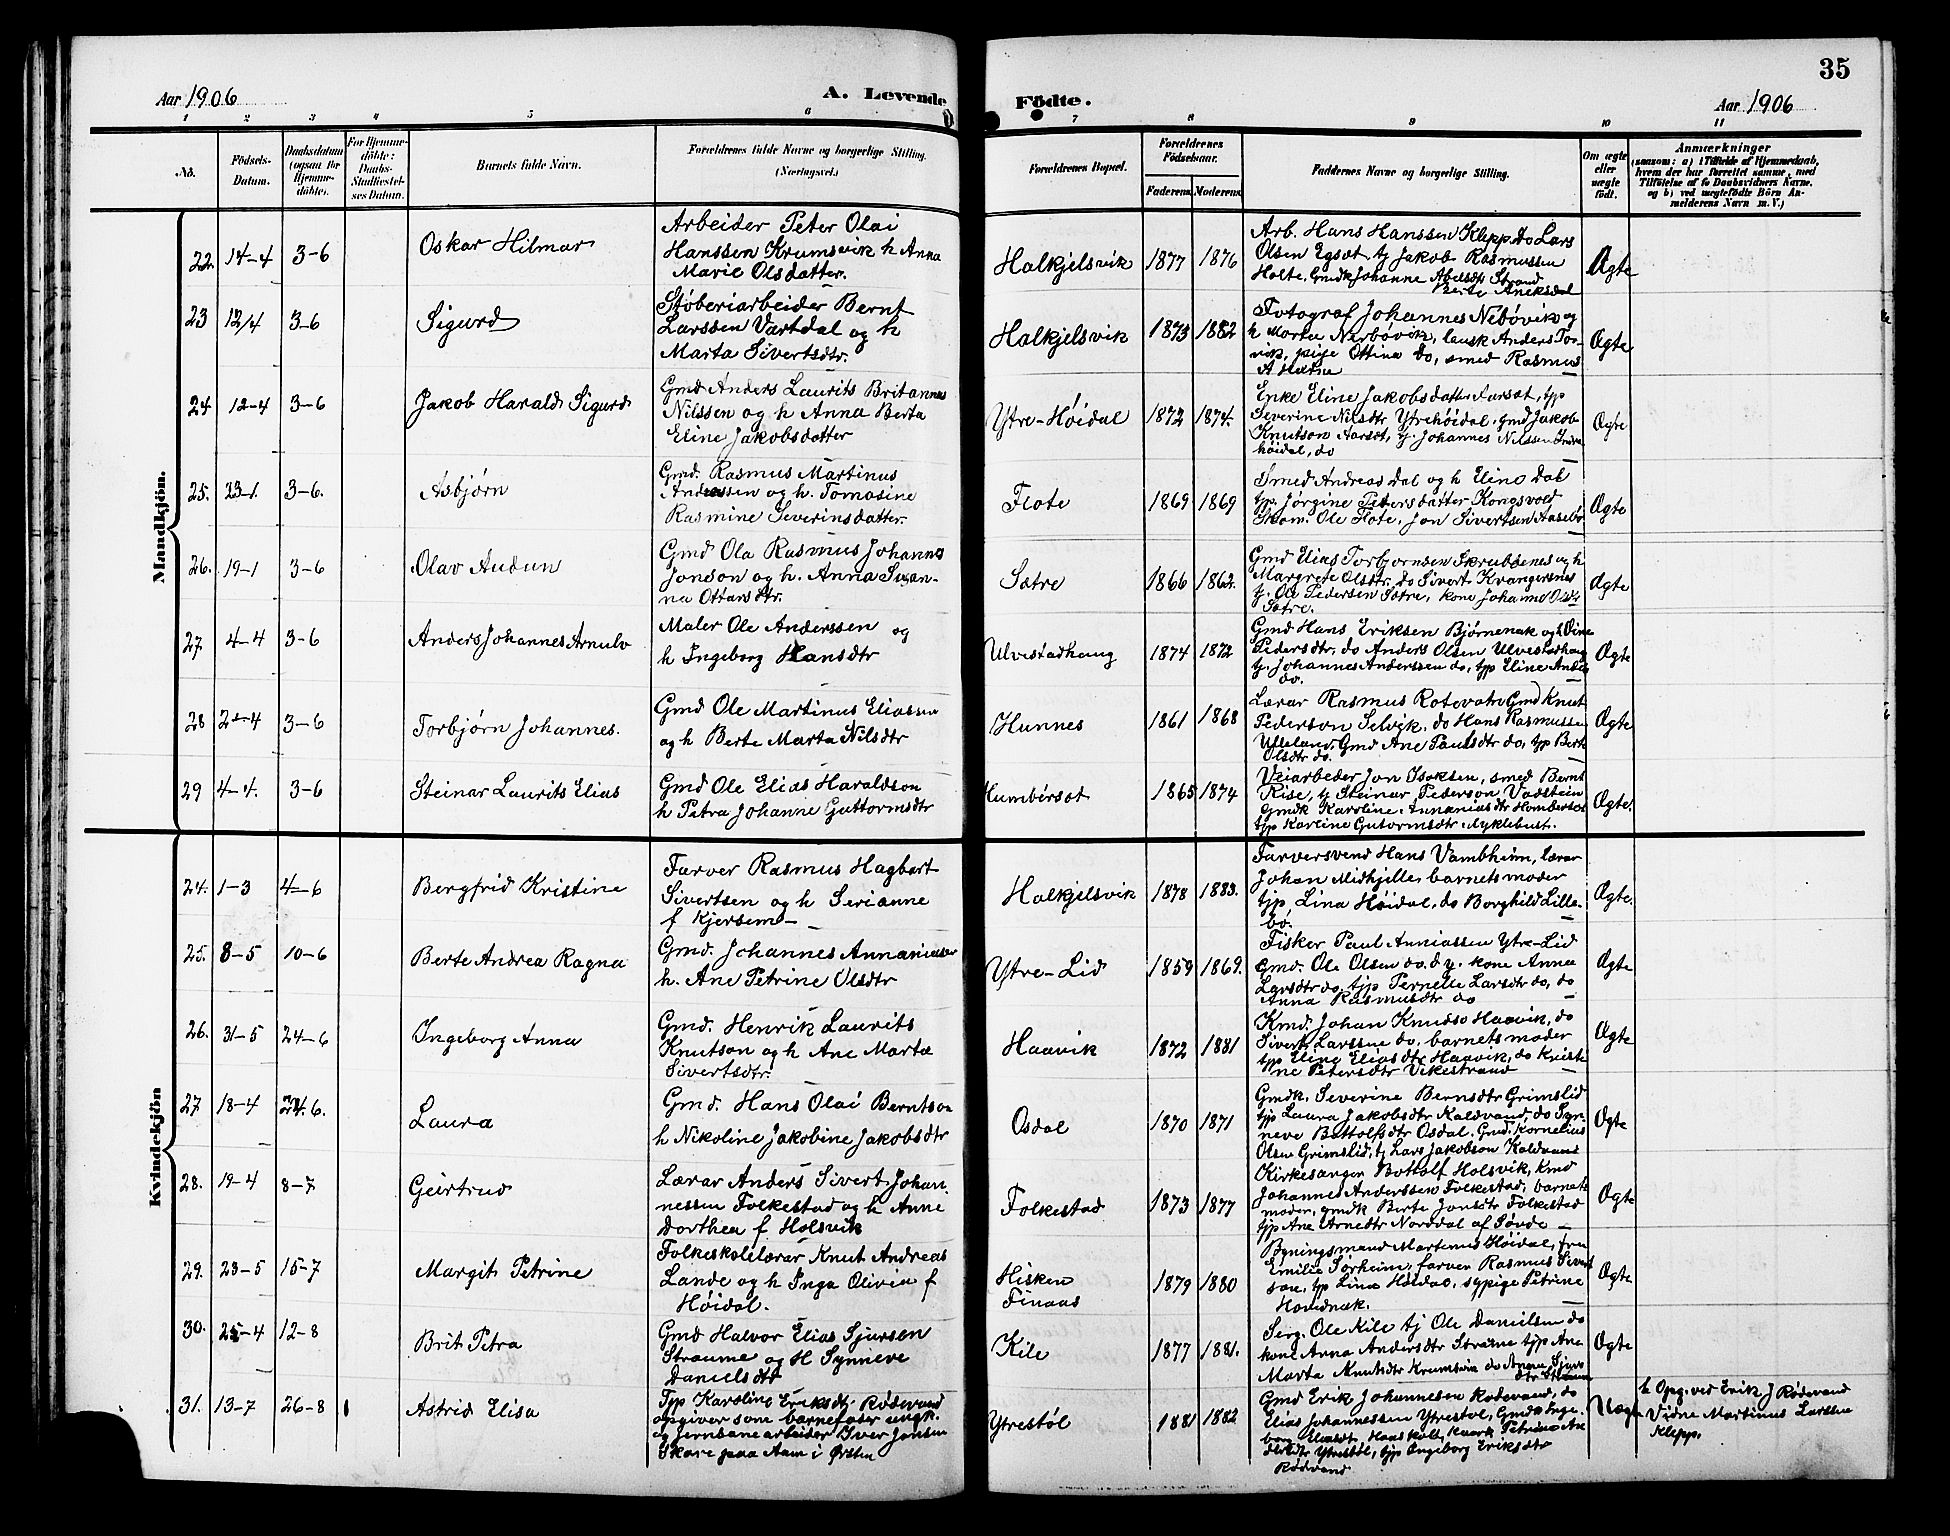 35
Aar 1906
A. Levende
Födte.
Aar 1906
1 2 3 4 5 6 7 8 9 10 11
No.
Födsels-
Datum.
Daabsdatum
(ogsaa for
Hjemme-
döbte).
For Hjemme-
döbte:
Daabs-
Stadfæstel-
ses Datum.
Barnets fulde Navn.
Forældrenes fulde Navne og borgerlige Stilling.
(Næringsvei.)
Forældrenes Bopæl.
Forældrenes
Födselsaar.
Faderens. Moderens.
Faddernes Navne og borgerlige Stilling.
Om ægte
eller
uægte
födt.
Anmærkninger
(saasom: a) i Tilfælde af Hjemmedaab,
hvem der har forrettet samme, med
Tilföielse af to Daabsvidners Navne.
og b) ved uægtefödte Börn An-
melderens Navn m. V.)
Mandkjön.
22. 14-4 3-6 Oskar Hilmar
Arbeider Peter Olai
Hanssen Krumsvik h Anna
Marie Olsdatter.
Halkjelsvik 1877 1876
Arb. Hans Hanssen Klepp, do Lars
Olsen Egset, tj Jakob Rasmussen
Holte, Gmdk Johanne Abelsdtr Strand
Berte Aneksdal
Ægte
23 12/4 3-6 Sigurd
Støberiarbeider Bernt
Larssen Vartdal og h
Marta Sivertsdtr.
Halkjelsvik 1873 1882
Fotograf Johannes Nebövik og
h Marta Nerbövik, lausk Anders Tor-
vik, pige Ottina do, smed Rasmus
Ægte
24 12-4 3-6 Jakob Harald Sigurd
Gmd Anders Laurits Britanus
Nilssen og h Anna Berta
Eline Jakobsdatter
Ytre-Höidal 1872 1874.
Enke Eline Jakobsdatter Aarset, tjp
Severine Nilsdtr Ytrehöidal, Gmd Jakob
Knutson Aarset, tj. Johannes Nilssen Indre
höidal, do
Ægte
25. 23-1. 3-6. Asbjørn
Gmd. Rasmus Martinus
Anderssen og h. Tomasine
Rasmine Severinsdatter.
Flote 1869 1869
Smed Andreas Dal og h Eline Dal
tjp. Jörgine Pedersdatter Kongsvold
Skom. Ole Flote, Jon Sivertsen Aasebö
Ægte
26. 19-1 3-6 Olav Audun
Gmd Ola Rasmus Johannes
Jonson og h. Anna Susan-
na Ottarsdtr.
Sætre 1866 1862.
Gmd Elias Torbjornsen Skrubbenes og h
Margrete Olsdtr. do Sivert Kvangersnes
tj. Ole Pedersen Sætre, kone Johanna Olsdtr
Sætre.
Ægte
27 4-4 3-6 Anders Johannes Arnulv
Maler Ole Anderssen og
h Ingeborg Hansdtr
Ulvestadhaug 1874 1872
Gmd Hans Eriksen Bjørnenak og h Oline
Pedersdtr, do Anders Olsen Ulvestadhaug
tj. Johannes Anderssen do, tjp Eline Anders
do.
Ægte
28 2-4 3-6 Torbjørn Johannes.
Gmd Ole Martinus Eliassen
og h Berte Marta Nilsdtr
Hunnes 1861 1868
Lærar Rasmus Rotevatn Gmd Knut
Pederson Selvik, do Hans Rasmussen
Ulveland, Gmd Ane Paulsdtr do, tjp Berte
Olsdtr do.
Ægte
29 4-4. 3-6 Steinar Laurits Elias
Gmd Ole Elias Haraldson
h Petra Johanne Guttormsdtr
Humbörset 1865 1874
Veiarbeider Jon Isaksen, smed Bernt
Rise, tj Steinar Pederson Vadstein
Gmdk Karoline Annaniasdtr Homberset
tjp Karline Gutormsdtr Myklebust.
Ægte.
Kvindekjön
24. 1-3 4-6 Bergfrid Kristine
Farver Rasmus Hagbart
Sivertsen og h Serianne
f Kjersem
Halkjelsvik 1878 1883.
Farversvend Hans Vambheim, lærar
Johan Midkjelle, barnets moder
tjp Lina Höidal, do Borghild Lille-
bö.
Ægte.
25. 8-5 10-6 Berte Andrea Ragna
Gmd. Johannes Annaniassen
h. Ane Petrine Olsdtr
Ytre-Lid 1859 1869.
Fisker Paul Anniassen Ytre-Lid
Gmd. Ole Olsen do. d y. kone Anna
Larsdtr do. tjp Pernelle Larsdtr do, do
Anna Rasmusdtr do
Ægte
26. 31-5 24-6 Ingeborg Anna
Gmd. Henrik Laurits
Knutson og h Ane Marta
Sivertsdtr.
Haavik 1872 1881
Kmd. Johan Knudso Haavik, do
Sivert Larssen do, barnets moder
tjp Eline Eliasdtr Haavik, do Kristi-
ne Petersdtr Vikestrand
Ægte
27 18-4 24-6. Laura
Gmd. Hans Olai Berntson
h Nikoline Jakobine Jakobsdtr
Osdal 1870 1871
Gmdk. Severine Bernsdtr Grimslid
tjp Laura Jakobsdtr Kaldvand, do Syn-
neve Bottolfsdtr Osdal. Gmd. Kornelius
Olsen Grimslid, tj Lars Jakobson Kaldvand
Ægte
28. 19-4 8-7 Geirtrud
Lærar Anders Sivert Johan-
nessen Folkestad og h Anne
Dorthea f Holsvik
Folkestad 1873 1877
Kirkesanger Bottolf Holsvik, Kmd
Johannes Anderssen Folkestad, barnets
moder, gmdk Berte Jonsdtr Folkestad
tjp Ane Arnedtr Norddal af Søvde
Ægte
29. 23-5 15-7 Margit Petrine
Folkeskolelærar Knut Andreas
Lande og h Inga Olivia f
Höidal.
Hisken
Finaas
1879 1880
Bygningsmand Martenus Höidal, fru
Emilie Sørheim, farver Rasmus Sivert
sen, tjp Lina Höidal, sypige Petrine
Hovdenak.
Ægte
30. 25-4 12-8 Brit Petra
Gmd Halvor Elias Sjursen
Straume og H Synneve
Danielsdtr
Kile 1877 1881.
Serg. Ole Kile tj Ole Danielsen do
kone Anna Andersdtr Straume tjp Ane
Marta Knutsdtr Krumsvik do Anna Sjurs
dtr Straum
Ægte
31. 13-7 26-8 Astrid Elisa
Tjp Karoline Eriksdtr Rödevand
opgiver som barnefader ungk.
og jernbanearbeider Iver Jonsen
Skare paa Aam i Ørsten
Ytrestöl 1881 1882
Gmd Erik Johannesen Rodevand, do
Elias Johannessen Ytrestöl, Gmdk Inge-
borg Eliasdtr, Hans Koll, Petrine Ane
Ytrestöl, tjp Ingeborg Eriksdtr
Rödevand
Uægte
h Opg. ved Erik J Rödevand
Vidne Martinus Larssen
Klepp.